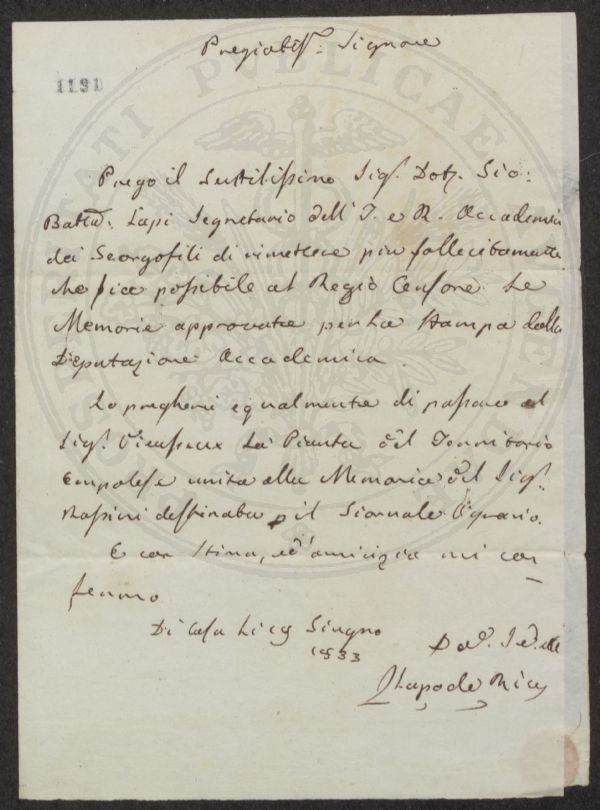 Pregiatiss. Signore
1191
Prego il Gentilissimo Sig. Dott. Gio:
Batta. Lapi Segretario dell' I. e R. Accademia
dei Georgofili di rimettere piu sollecitamente
che sia possibile al Regio Censore Le
Memorie approvate per La Stampa dalla
Deputazione Accademica
Lo pregherei egualmente di passare al
Sig. Vieusseux La Pianta del Territorio
Empolese unita alla Memoria del Sig.
destinata p il Giornale Agrario.
E con Stima, ed amicizia mi con
fermo
Di Casa Li Giugno
1833
Lapo de Ricci
PUBLICAE